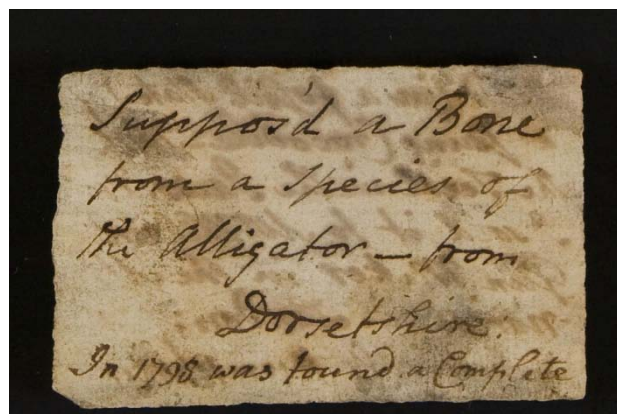 Suppos'd a Bone
from a species of
the Alligator – from
Dorsetshire.
In 1798 was found a Complete